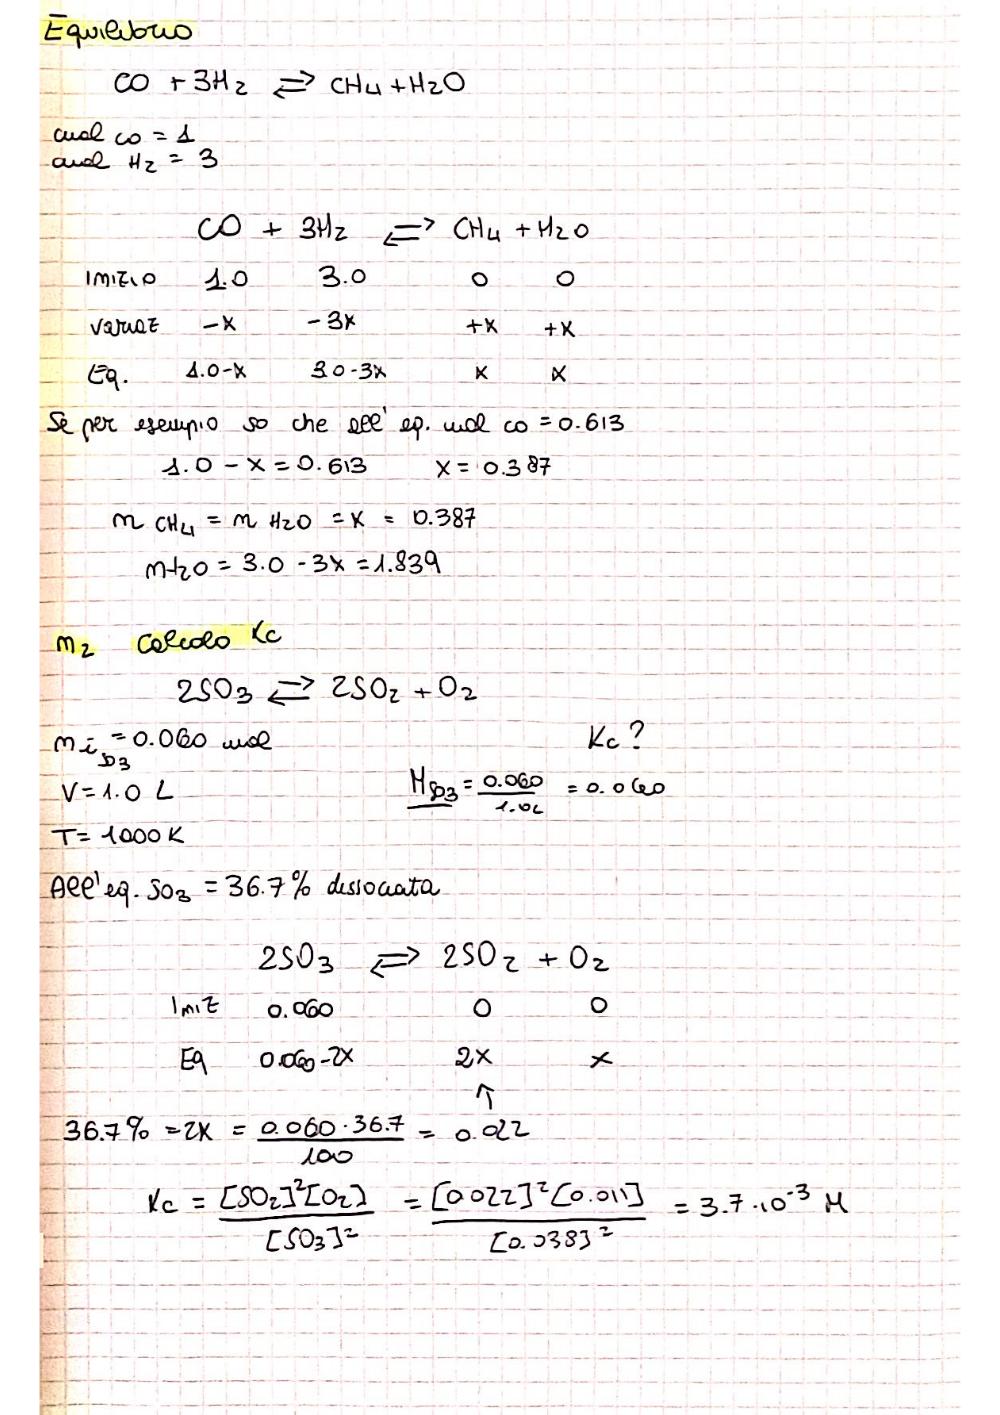 Equilibrio
CO + 3H2 ⇌ CH4 + H2O
mol CO = 1
mol H2 = 3
CO + 3H2 ⇌ CH4 + H2O
INIZIO 1.0 3.0 0 0
variaz -x -3x +x +x
Eq. 1.0-x 3.0-3x x x
Se per esempio so che all'eq. mol CO = 0.613
1.0 - x = 0.613 x = 0.387
n CH4 = n H2O = x = 0.387
nH2O = 3.0 - 3x = 1.839
n2 Calcolo Kc
2SO3 ⇌ 2SO2 + O2
ni SO3 = 0.060 mol Kc?
V = 1.0 L MSO3 = 0.060 / 1.0L = 0.060
T = 1000 K
All'eq. SO3 = 36.7% dissociata
2SO3 ⇌ 2SO2 + O2
Iniz 0.060 0 0
Eq 0.060-2x 2x x
↑
36.7% = 2x = 0.060 · 36.7 / 100 = 0.022
Kc = [SO2]²[O2] / [SO3]² = [0.022]²[0.011] / [0.038]² = 3.7·10⁻³ M